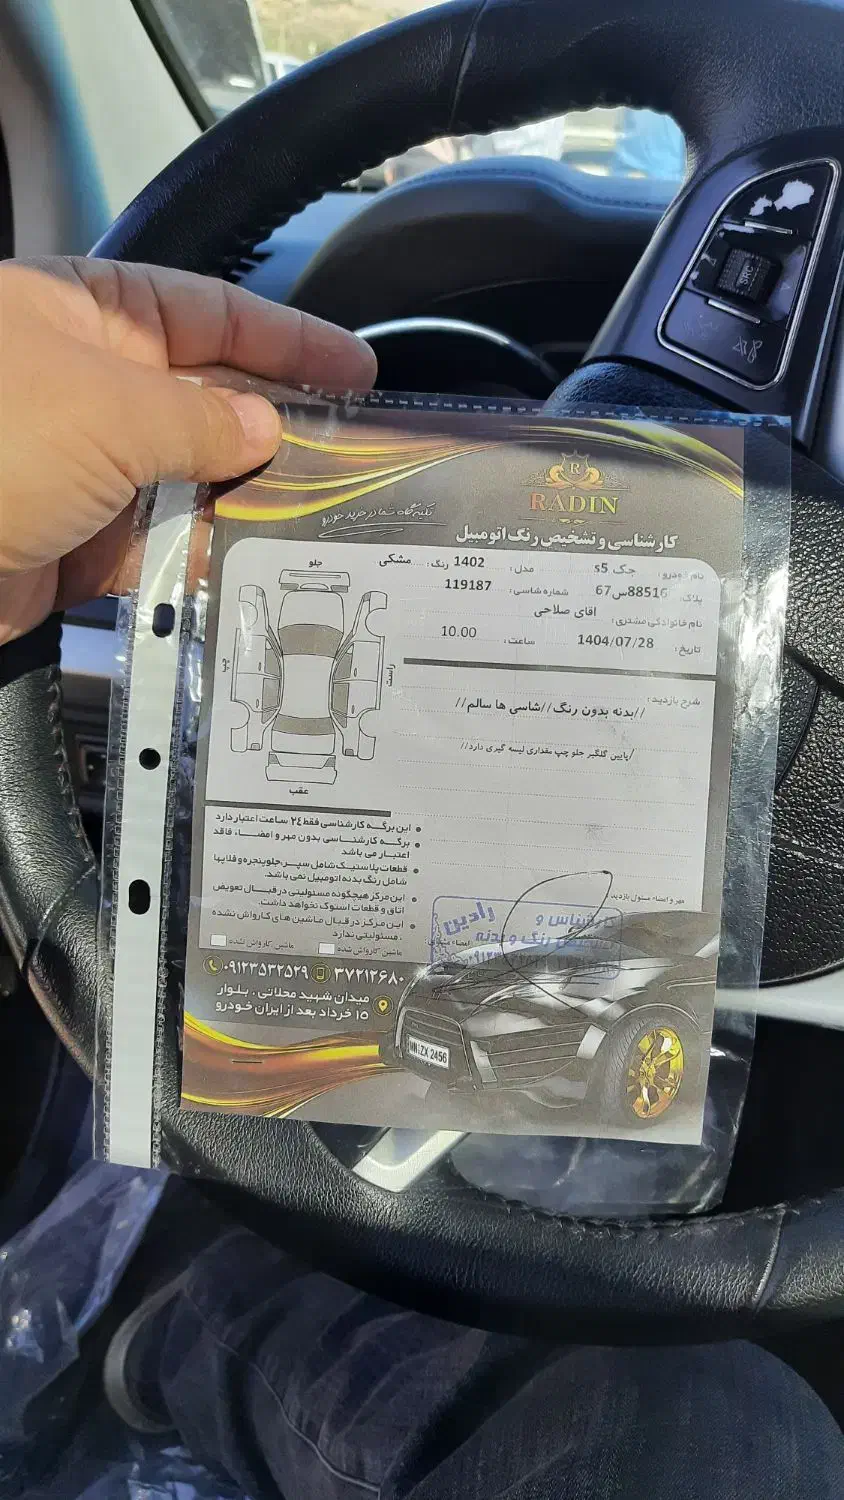 SRC
R
RADIN
تکیه گاه شما در خرید خودرو
کارشناسی و تشخیص رنگ اتومبیل
نام خودرو: جک s5 مدل: 1402 رنگ: مشکی
پلاک: 88516س67 شماره شاسی: 119187
نام خانوادگی مشتری: اقای صلاحی
تاریخ: 1404/07/28 ساعت: 10.00
جلو
چپ
راست
عقب
شرح بازدید:
//بدنه بدون رنگ//شاسی ها سالم//
/پایین گلگیر جلو چپ مقداری لیسه گیری دارد//
این برگه کارشناسی فقط ۲۴ ساعت اعتبار دارد
برگه کارشناسی بدون مهر و امضا، فاقد
اعتبار می باشد
قطعات پلاستیک شامل سپر، جلوپنجره و قلابها
شامل رنگ بدنه اتومبیل نمی باشد.
این مرکز هیچگونه مسئولیتی در قبال تعویض
اتاق و قطعات استوک نخواهد داشت.
این مرکز در قبال ماشین های کارواش نشده
مسئولیتی ندارد.
ماشین کارواش شده
ماشین کارواش نشده
مهر و امضاء مسئول بازدید
امضاء مشتری:
کارشناس و
تشخیص رنگ و بدنه
رادین
۳۷۲۱۲۶۸۰ ۰۹۱۲۳۵۳۲۵۲۹
میدان شهید محلاتی، بلوار
۱۵ خرداد بعد از ایران خودرو
NN:ZX 2456